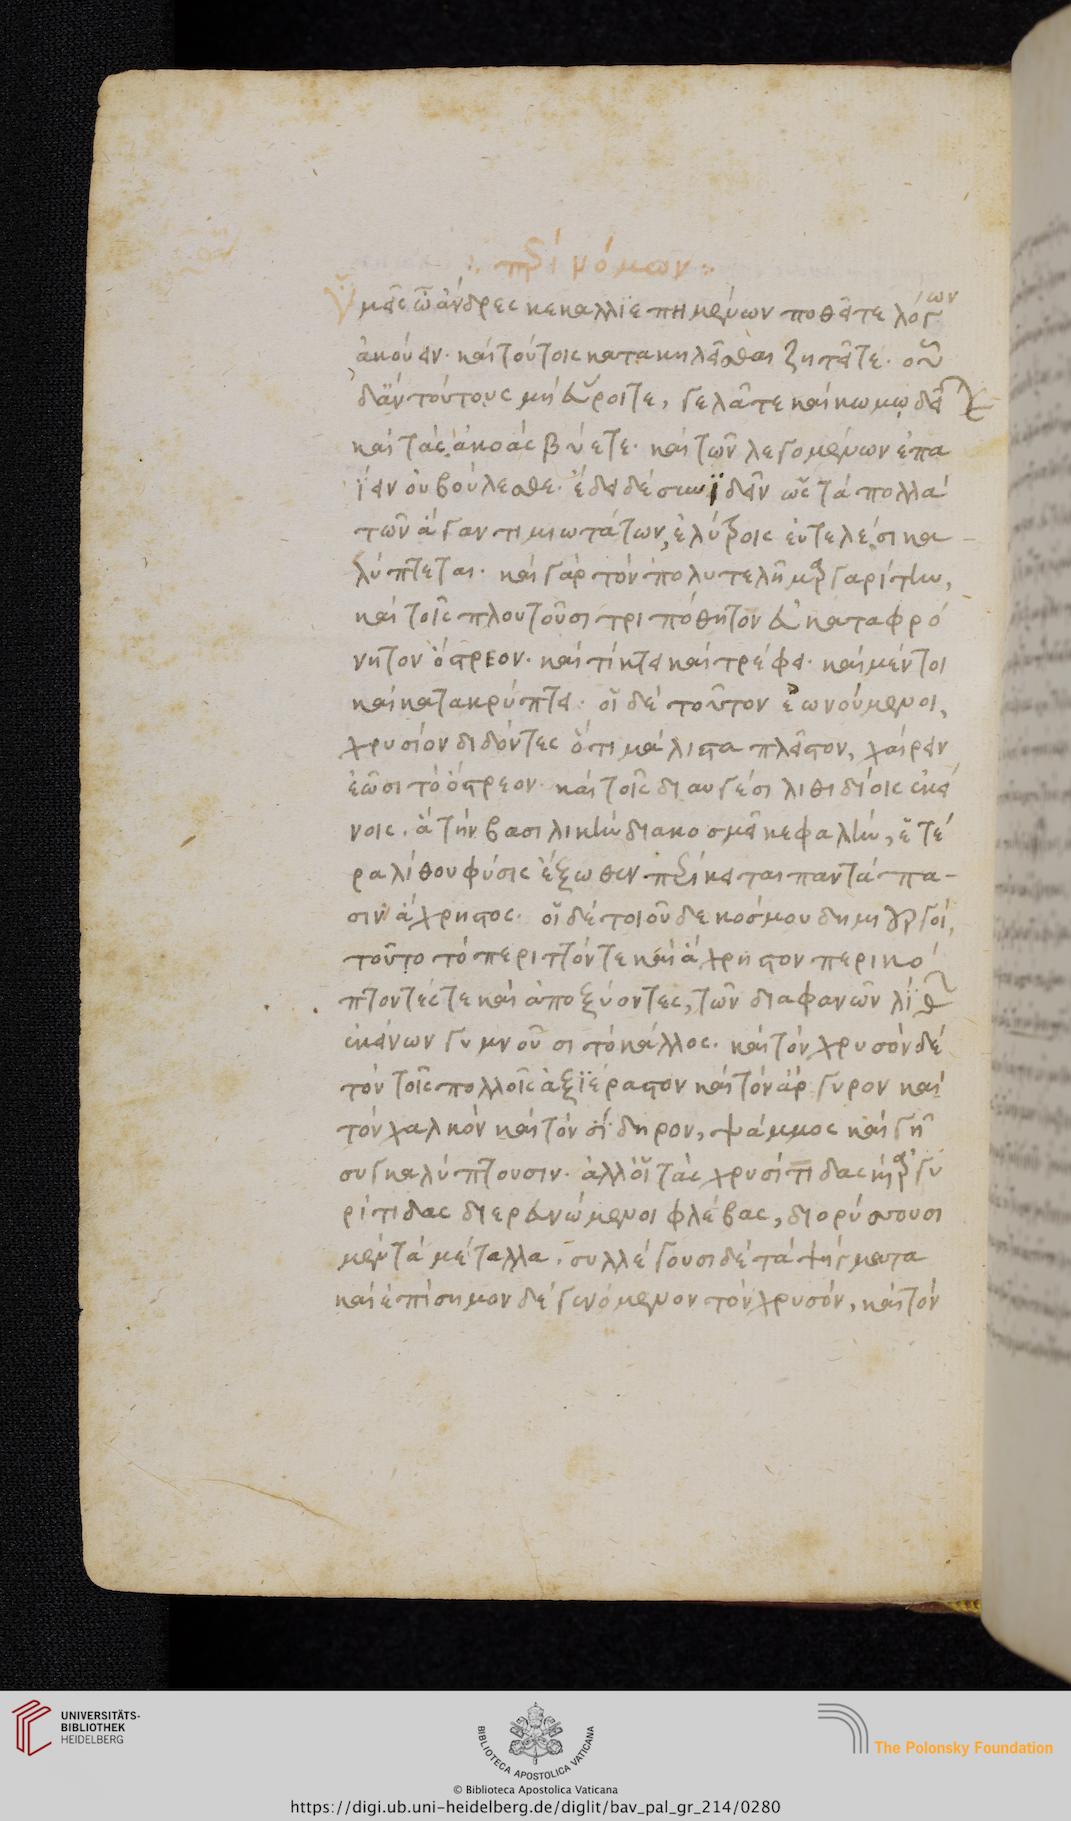 περὶ νόμων
Ὑμεῖς ὦ ἄνδρες κεκαλλιεπημένων ποθεῖτε λόγων
ἀκούειν· καὶ τούτοις κατακηλεῖσθαι ζητεῖτε· οὗ
δ' ἂν τούτους μὴ εὕροιτε, γελᾶτε καὶ κωμῳδεῖτε
καὶ τὰς ἀκοὰς βύετε· καὶ τῶν λεγομένων ἐπα
ΐειν οὐ βούλεσθε· ἔδει δὲ συνϊδεῖν ὡς τὰ πολλὰ
τῶν ἄγαν τιμιωτάτων, ἐλύτροις εὐτελέσι κα
λύπτεται· καὶ γὰρ τὸν πολυτελῆ μαργαρίτην,
καὶ τοῖς πλουτοῦσι τριπόθητον εὐκαταφρό
νητον ὄστρεον· καὶ τίκτει καὶ τρέφει· καὶ μέντοι
καὶ κατακρύπτει· οἱ δὲ τοῦτον ἐωνούμενοι,
χρυσίον διδόντες ὅτι μάλιστα πλεῖστον, χαίρειν
ἐῶσι τὸ ὄστρεον· καὶ τοῖς διαυγέσι λιθιδίοις ἐκεί
νοις· ἃ τὴν βασιλικὴν διακοσμεῖ κεφαλήν, ἑτέ
ρα λίθου φύσις ἔξωθεν περίκειται παντάπα-
σιν ἄχρηστος· οἱ δὲ τοιοῦδε κόσμου δημιουργοί,
τοῦτο τὸ περιττόν τε καὶ ἄχρηστον περικό
πτοντές τε καὶ ἀποξύοντες, τῶν διαφανῶν λίθων
ἐκείνων γυμνοῦσι τὸ κάλλος· καὶ τὸν χρυσὸν δὲ
τὸν τοῖς πολλοῖς ἀξϊέραστον καὶ τὸν ἄργυρον καὶ
τὸν χαλκὸν καὶ τὸν σίδηρον, ψάμμος καὶ γῆ
συγκαλύπτουσιν· ἀλλ' οἱ τὰς χρυσίτιδας ἢ ἀργυ
ρίτιδας διερευνώμενοι φλέβας, διορύττουσι
μὲν τὰ μέταλλα· συλλέγουσι δὲ τὰ ψήγματα
καὶ ἐπίσημον δὲ γενόμενον τὸν χρυσόν, καὶ τὸν
UNIVERSITÄTS-
BIBLIOTHEK
HEIDELBERG
BIBLIOTECA APOSTOLICA VATICANA
The Polonsky Foundation
© Biblioteca Apostolica Vaticana
https://digi.ub.uni-heidelberg.de/diglit/bav_pal_gr_214/0280